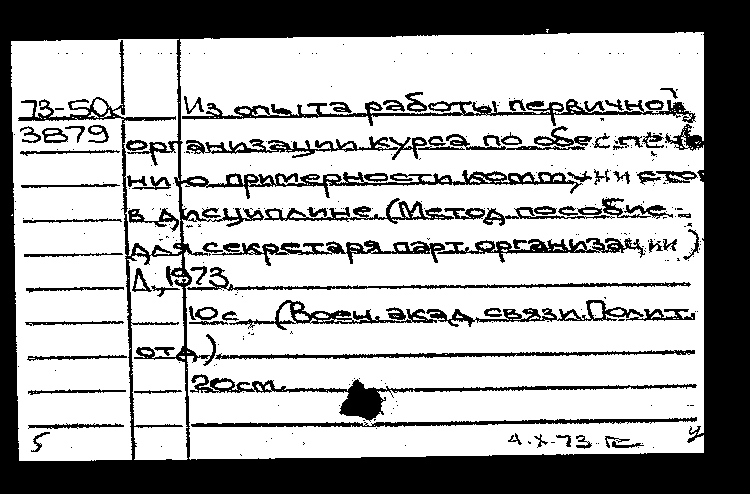 73-50к Из опыта работы первичной
3879 организации курса по обеспече
нию примерности коммунистов
в дисциплине. (Метод. пособие -
для секретаря парт. организации)
Л., 1973.
10 с. (Воен. акад. связи. Полит.
отд.)
20 см.
5 4.X.73